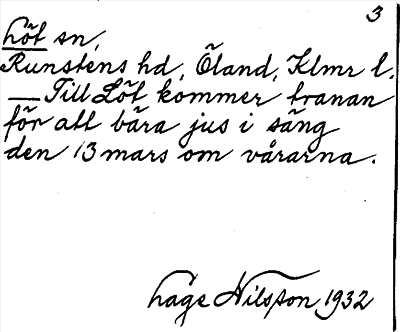 3
Löt sn,
Runstens hd, Öland, Klmr l.
— Till Löt kommer tranan
för att bära jus i säng
den 13 mars om vårarna.
Nilsson 1932